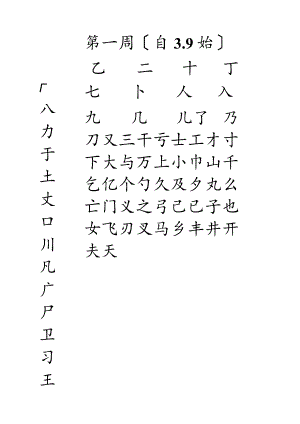 第一周〔自3.9始〕
乙 二 十 丁
七 卜 人 入
九 几 儿了 乃
刀又三干亏士工才寸
下大与万上小巾山千
乞亿个勺久及夕丸么
亡门义之弓己已子也
女飞刃叉马乡丰井开
夫天
厂
八
力
于
土
丈
口
川
凡
广
尸
卫
习
王